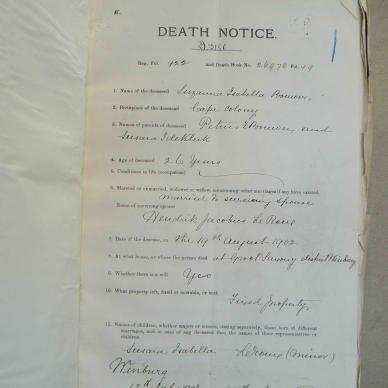 DEATH NOTICE.
Reg. Fol. 422 and Death Book No.
1. Name of the deceased Suzanna Isabella Bouwer
2. Birthplace of the deceased Cape Colony
3. Names of parents of deceased Petrus Bouwer and
Susara
4. Age of deceased 26 Years
5. Condition in life (occupation)
6. Married or unmarried, widower or widow, mentioning other marriages if any have existed
Married to surviving spouse
Name of surviving spouse
Hendrik Jacobus Le Roux
7. Date of the decease, on the 19th August 1902
8. At what house, or where the person died at Groot district Winburg
9. Whether there is a will Yes
10. What property left, fixed or movable, or both
Fixed Property
11. Names of children, whether majors or minors, stating separately, those born of different
marriages, and in case of any deceased then the names of their representatives or
children
Susara Isabella Le Roux (Minor)
Winburg